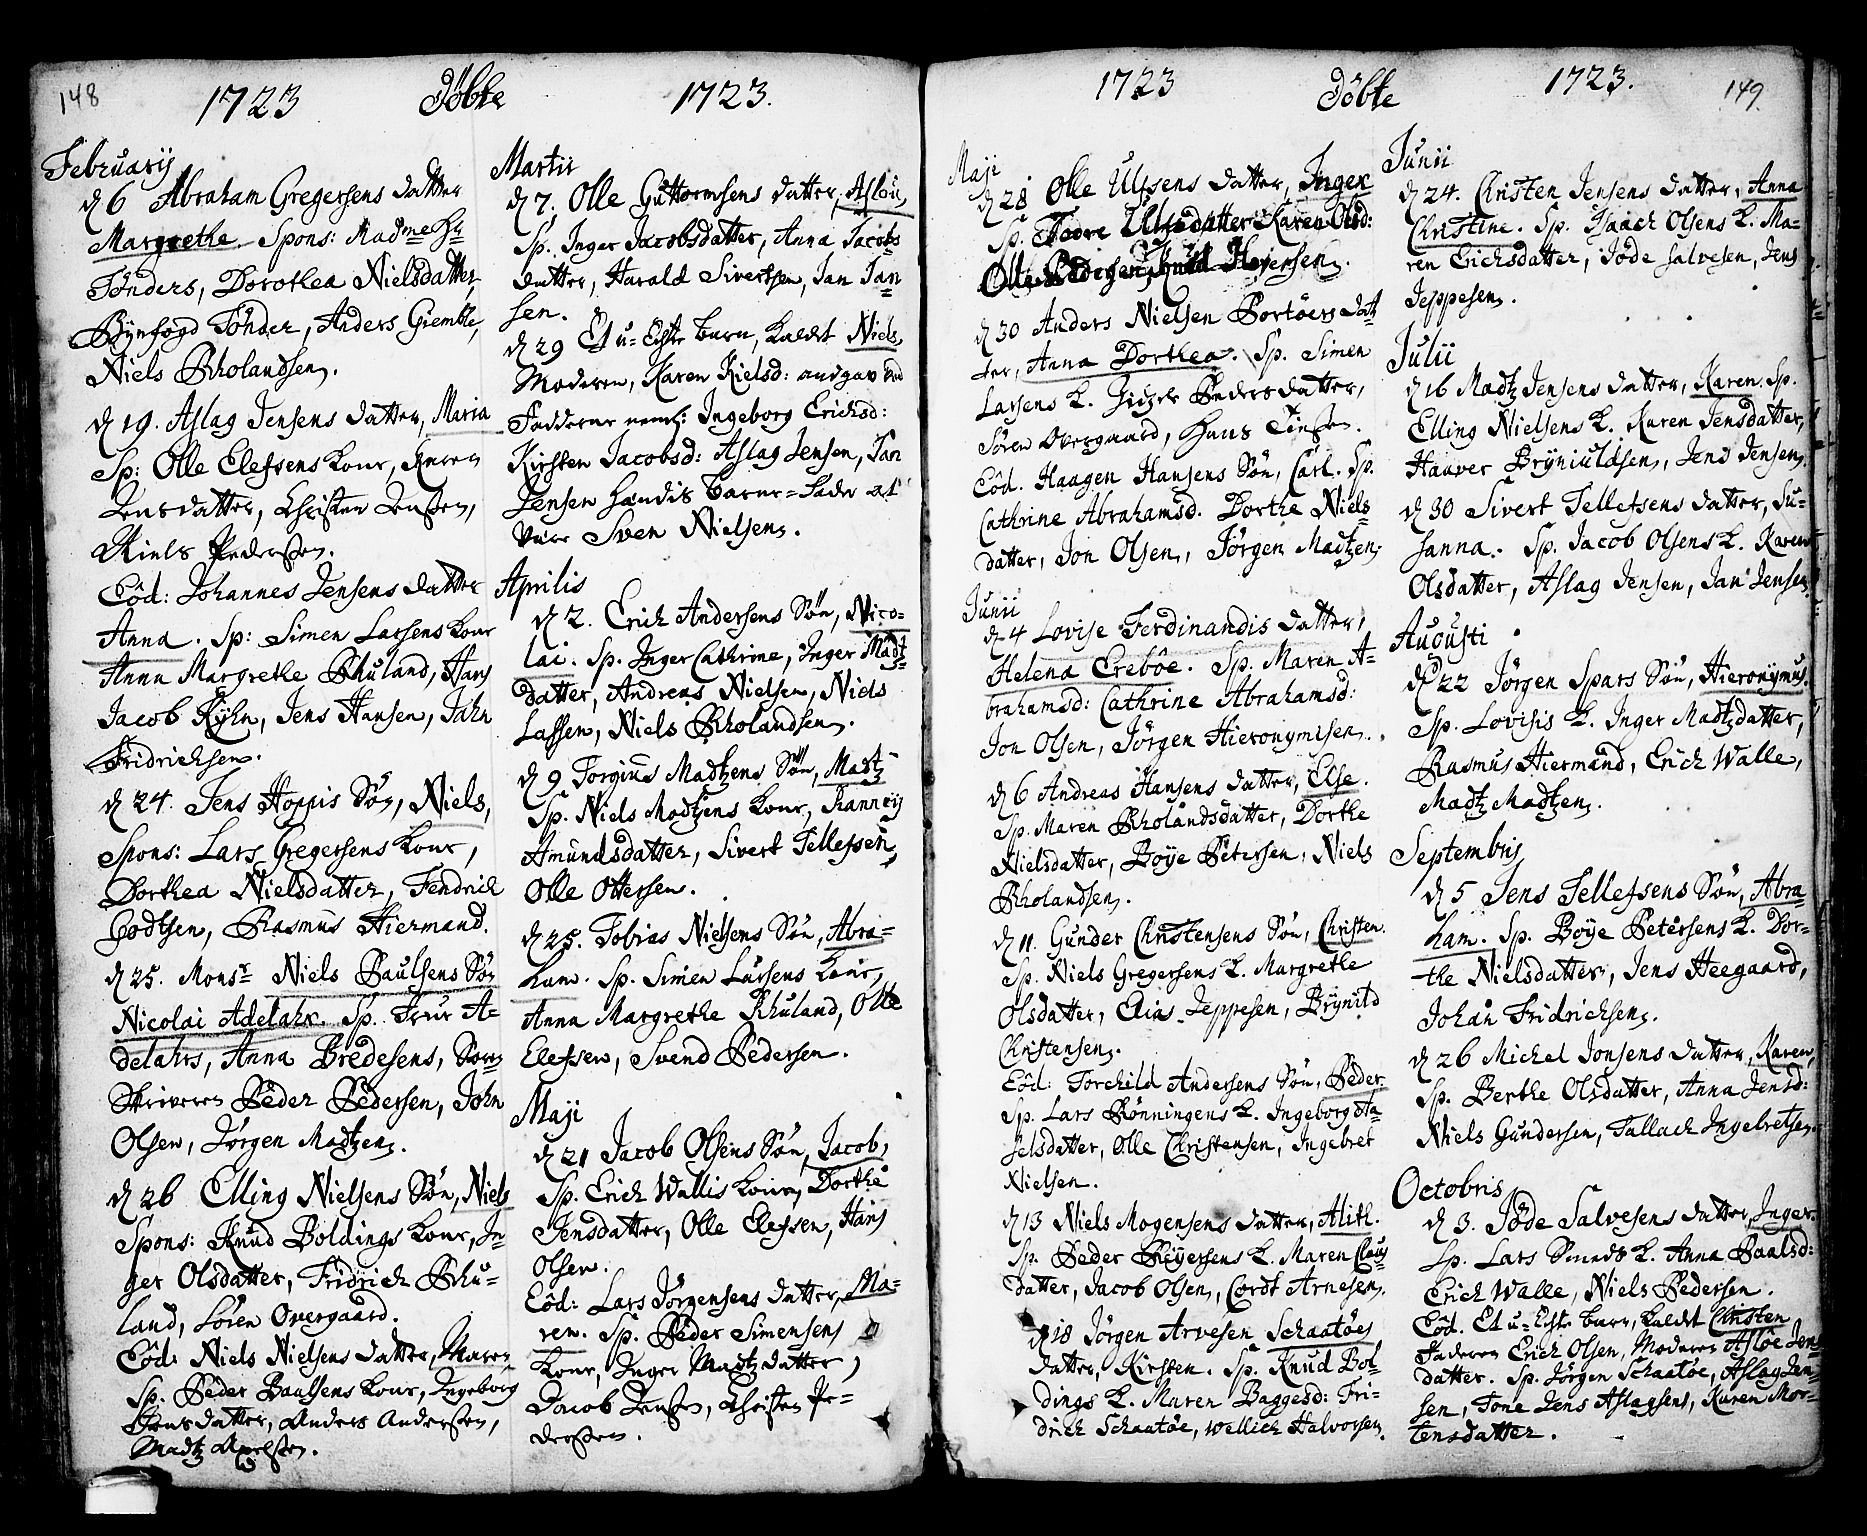 148
1723 Döbte 1723.
Februarij
d 6 Abraham Gregersens datter
Margrethe. Spons: Madme Sr
Tönders, Dorothea Nielsdatter
Bÿnfogd Tönder, Anders Giemble,
Niels Rholandsen.
d 19. Aslag Jensens datter, Maria
Sp: Olle Elefsens konr, Karen
Jensdatter, Christen Jenssen,
Niels Pederssen.
Eôd: Johannes Jensens datter
Anna. Sp: Simen Larsens konr
Anna Margrethe Rhuland, Hans
Jacob Kÿhn, Jens Hansen, Jahn
Fridrichsen.
d 24. Jens Hoppis Sön, Niels,
Spons: Lars Gregersens konr,
Dorthea Nielsdatter, Fendrich
Godtsen, Rasmus Hiermand.
d 25. Monsr Niels Paulsens Sön
Nicolai Adelahr. Sp. Frue A=
delahrs, Anna Bredesens, Soren=
skriveren Peder Pedersen, John
Olsen, Jörgen Madtzen.
d 26 Elling Nielsens Sön, Niels
Spons: Knud Boldings konr, In=
ger Olsdatter, Fridrich Rhu=
land, Sören Overgaard.
Eôd: Niels Nielsens datter, Maren
Sp. Peder Paulsens konr, Ingeborg
Jensdatter, Anders Anderssen,
Madtz Axelssen.
Martii
d 7. Olle Guttormsens datter, Aslou,
Sp. Inger Jacobsdatter, Anna Jacobs
datter, Harald Sivertsen, Jan Jan=
sen.
d 29 Et u=Echte barn, kaldt Niels,
Moderen, Karen Kielsd: angav ved
Fadderne neml: Ingeborg Ericksd:
Kirsten Jacobsd: Aslag Jensen, Jan
Jensen Handis barne=Fader at
være Sven Nielsen.
Aprilis
d 2. Erich Andersens Sön, Nico=
lai. Sp. Inger Cathrine, Inger Madtz=
datter, Andreas Nielsen, Niels
Lassen, Niels Rholandsen.
d 9 Torgius Madtzens Sön, Madtz
Sp. Niels Madtzens konr, Ranneÿ
Amundsdatter, Sivert Tellefsen,
Olle Ottersen.
d 25. Tobias Nielsens Sön, Abra=
ham. Sp. Simen Larsens konr,
Anna Margrethe Rhuland, Olle
Elefsen, Svend Pedersen.
Maji
d 21 Jacob Olsens Sön, Jacob,
Sp. Erich Wallis konr, Dorthe
Jensdatter, Olle Elefsen, Hans
Olsen.
Eôd: Lars Jörgensens datter, Ma=
ren. Sp. Peder Simensens
konr, Inger Madtzdatter,
Jacob Jenssen, Christen Pe=
derssen.
1723 Döbte 1723. 149.
Maji
d 28 Olle Ulfsens datter, Inger
Sp. Tore Ulfsdatter Karen Olsd:
Olle Pedersen, Knud Hojersen.
d 30 Anders Nielsen Bortöers dat=
ter, Anna Dorthea. Sp. Simen
Larsens k. Pedersdatter,
Sören Overgaard, Hans Tönsen.
Eôd. Haagen Hansens Sön, Carl. Sp.
Cathrine Abrahamsd. Dorthe Niels=
datter, Jon Olsen, Jörgen Madtzen.
Junii
d 4 Lovise Ferdinandis datter,
Helena Crebôe. Sp. Maren A=
brahamsd: Cathrine Abrahamsd:
Jon Olsen, Jörgen Hieronymisen.
d 6 Andreas Hansens datter, Else.
Sp. Maren Rholandsdatter, Dorthe
Nielsdatter, Boÿe Petersen, Niels
Rholandsen.
d 11. Gunder Christensens Sön, Christen.
Sp. Niels Gregersens k. Margrethe
Olsdatter, Elias Jeppesen, Brÿnild
Christensen.
Eôd: Torchild Andersens Sön, Peder
Sp. Lars Rönningens k. Ingeborg Ga=
jelsdatter, Olle Christensen, Ingebret
Nielsen.
d 13 Niels Mogensens datter, Alith.
Sp. Peder Reÿersens k. Maren Claus=
datter, Jacob Olsen, Cordt Arnesen.
d 18 Jörgen Arvesen Schaatöes
datter, Kirsten. Sp. Knud Bol=
dings k. Maren Baggesd: Fri=
drich Schaatöe, Wellich Halvorsen.
Junii
d 24. Christen Jensens datter, Anna
Christine. Sp. Isaach Olsens k. Ma=
ren Erichsdatter, Jöde Salvesen, Jens
Jeppesen.
Julii
d 16 Madtz Jensens datter, Karen. Sp.
Elling Nielsens k. Karen Jensdatter,
Haaver Brÿniuldsen, Jens Jensen.
d 30 Sivert Tellefsens datter, Su=
sanna. Sp. Jacob Olsens k. Karen
Olsdatter, Aslag Jensen, Jan Jensen.
Augusti
d 22 Jörgen Spars Sön, Hieronymus.
Sp. Lovisis k. Inger Madtzdatter,
Rasmus Hiermand, Erich Walle,
Madtz Madtzen.
Septembris
d 5 Jens Tellefsens Sön, Abra
ham. Sp. Boÿe Petersens k. Dor=
the Nielsdatter, Jens Heegaard,
Johan Fridrichsen.
d 26 Michel Jonsens datter, Karen,
Sp. Berthe Olsdatter, Anna Jensd:
Niels Gundersen, Tallach Ingebretsen.
Octobris
d 3. Jöde Salvesens datter, Inger.
Sp. Lars Smeds k. Anna Paalsd:
Erich Walle, Niels Pedersen.
Eôd. Et u=Echte barn, kaldt Christen
Faderen Erich Olsen, Moderen Aslöe Jens
datter. Sp. Jörgen Schaatöe, Aslag Jen=
sen, Tone Jens Aslagsens, Karen Mor=
tensdatter.